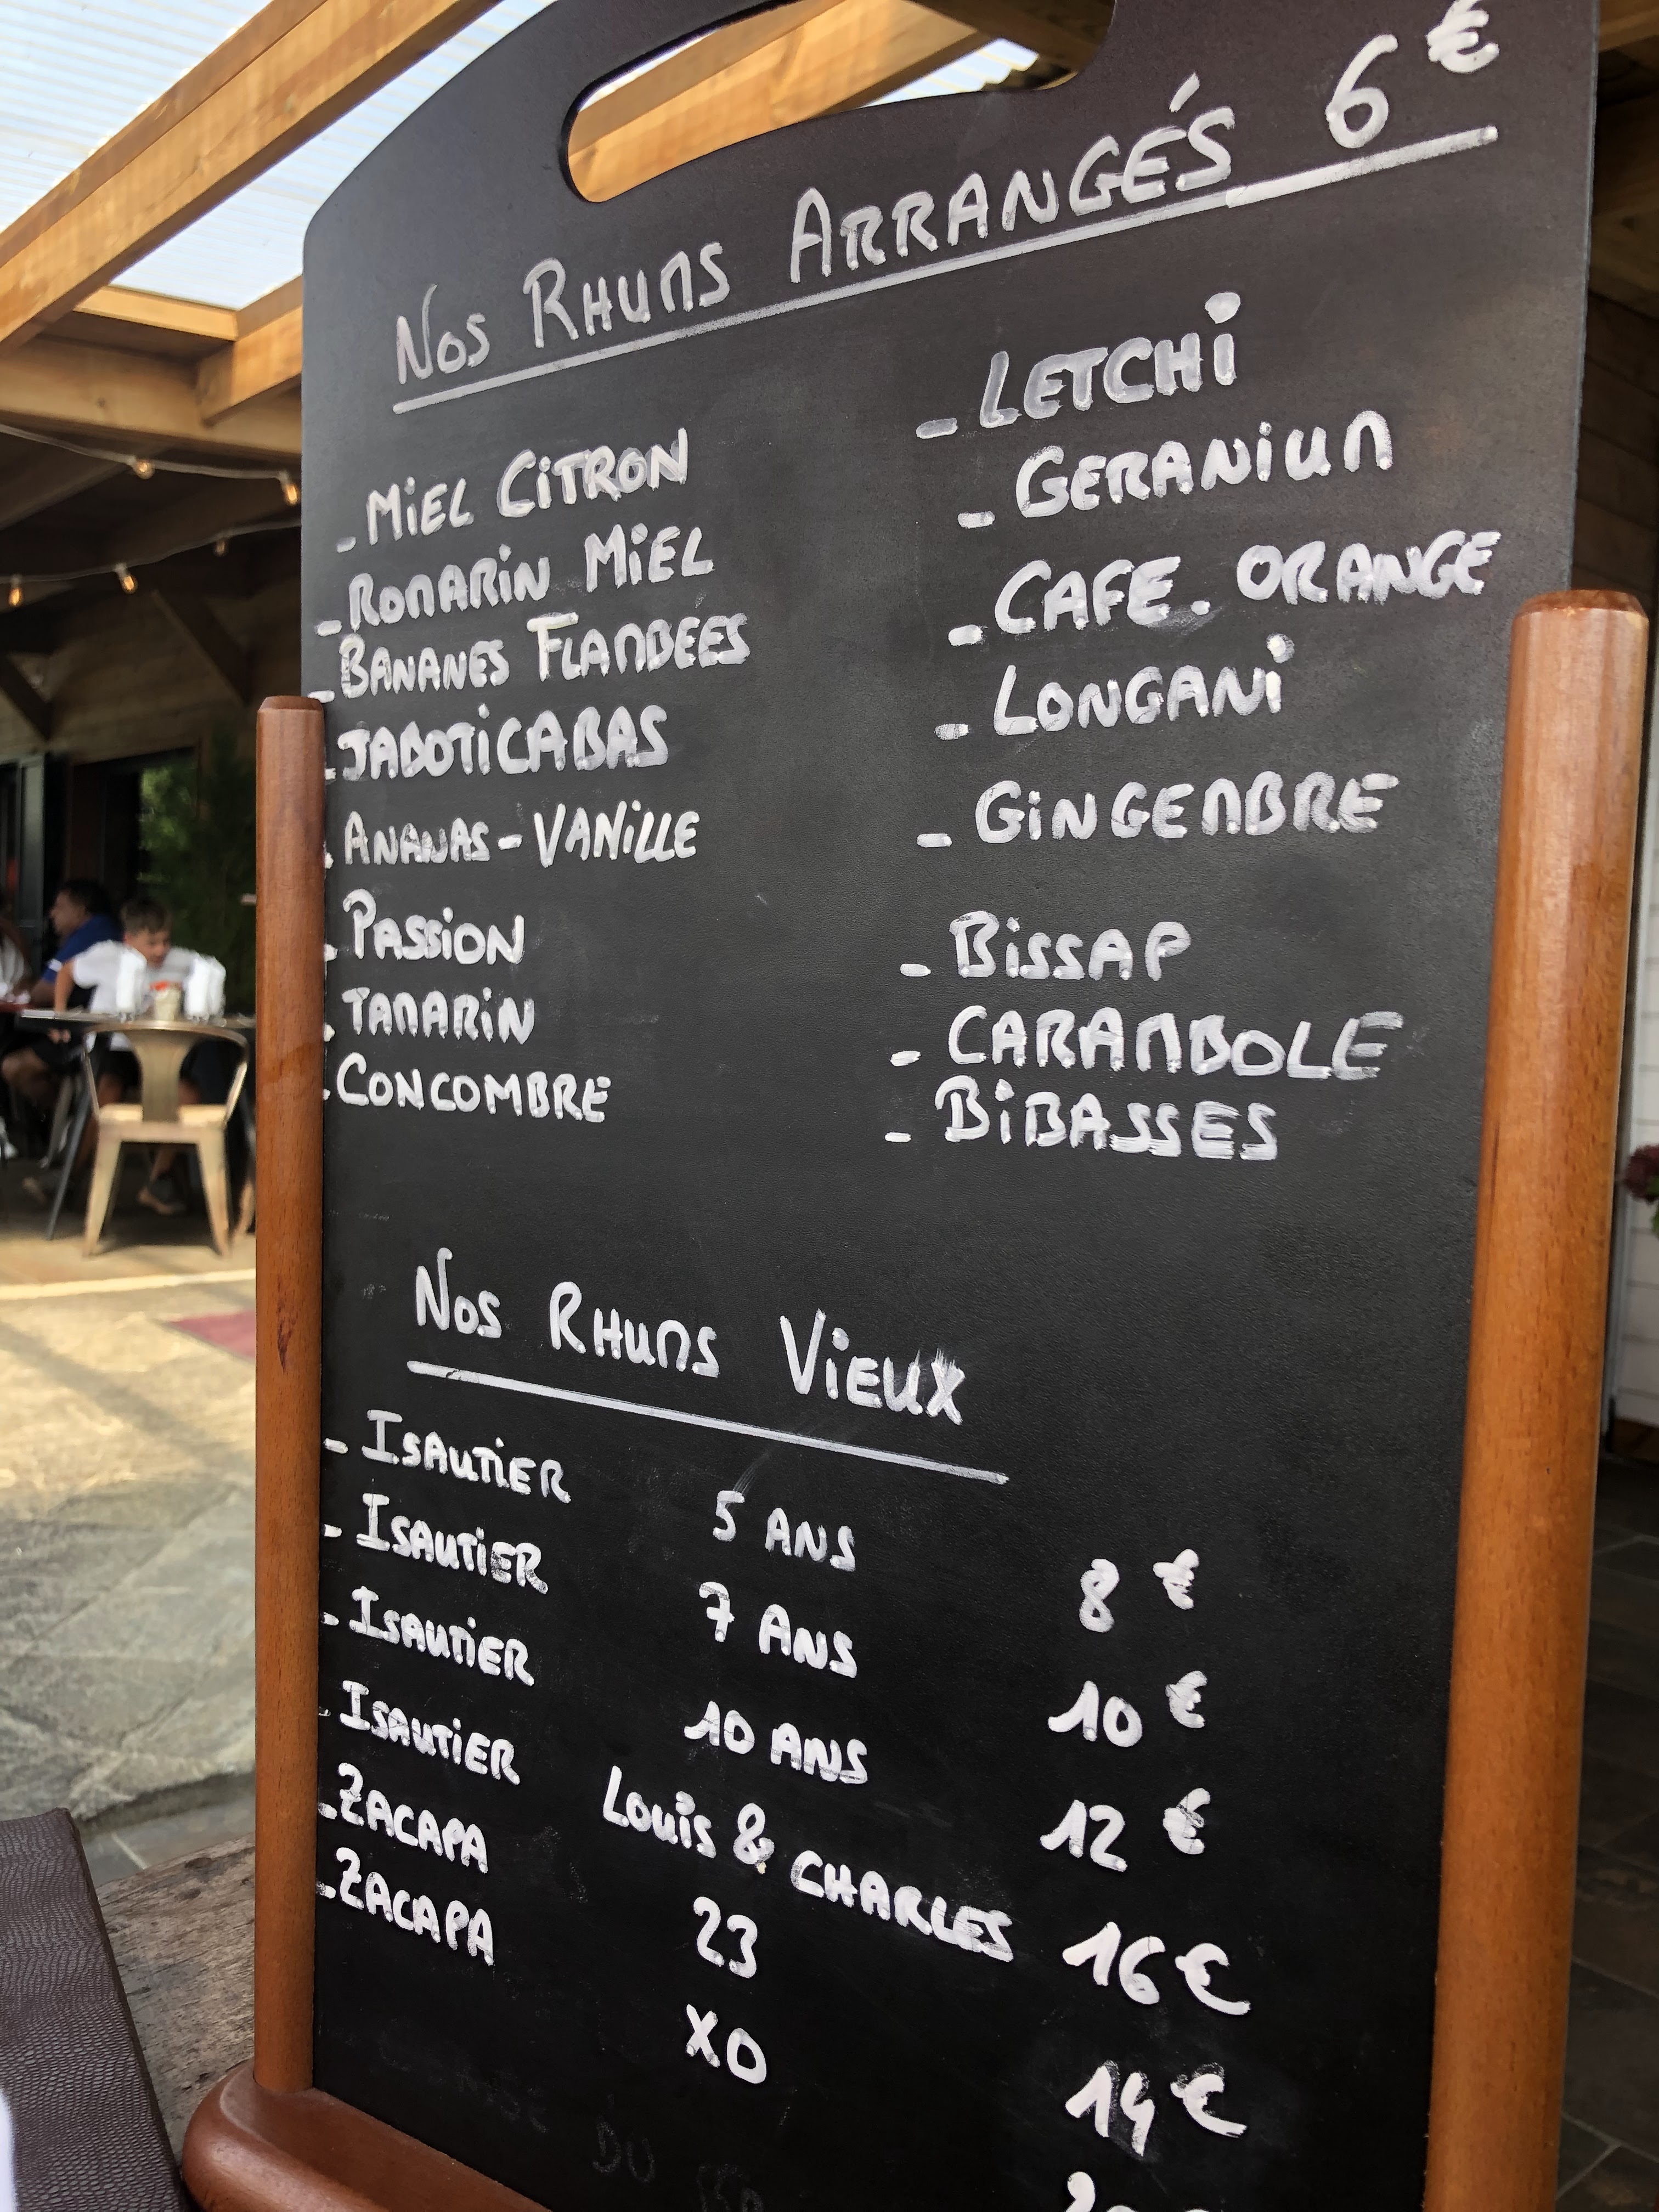 NOS RHUMS ARRANGÉS 6€
- MIEL CITRON
- ROMARIN MIEL
- BANANES FLAMBÉES
- JABOTICABAS
- ANANAS - VANILLE
- PASSION
- TAMARIN
- CONCOMBRE
- LETCHI
- GERANIUM
- CAFE. ORANGE
- LONGANI
- GINGEMBRE
- BISSAP
- CARAMBOLE
- BIBASSES
NOS RHUMS VIEUX
- ISAUTIER 5 ANS 8€
- ISAUTIER 7 ANS 10€
- ISAUTIER 10 ANS 12€
- ISAUTIER LOUIS & CHARLES 16€
- ZACAPA 23 14€
- ZACAPA XO
DU